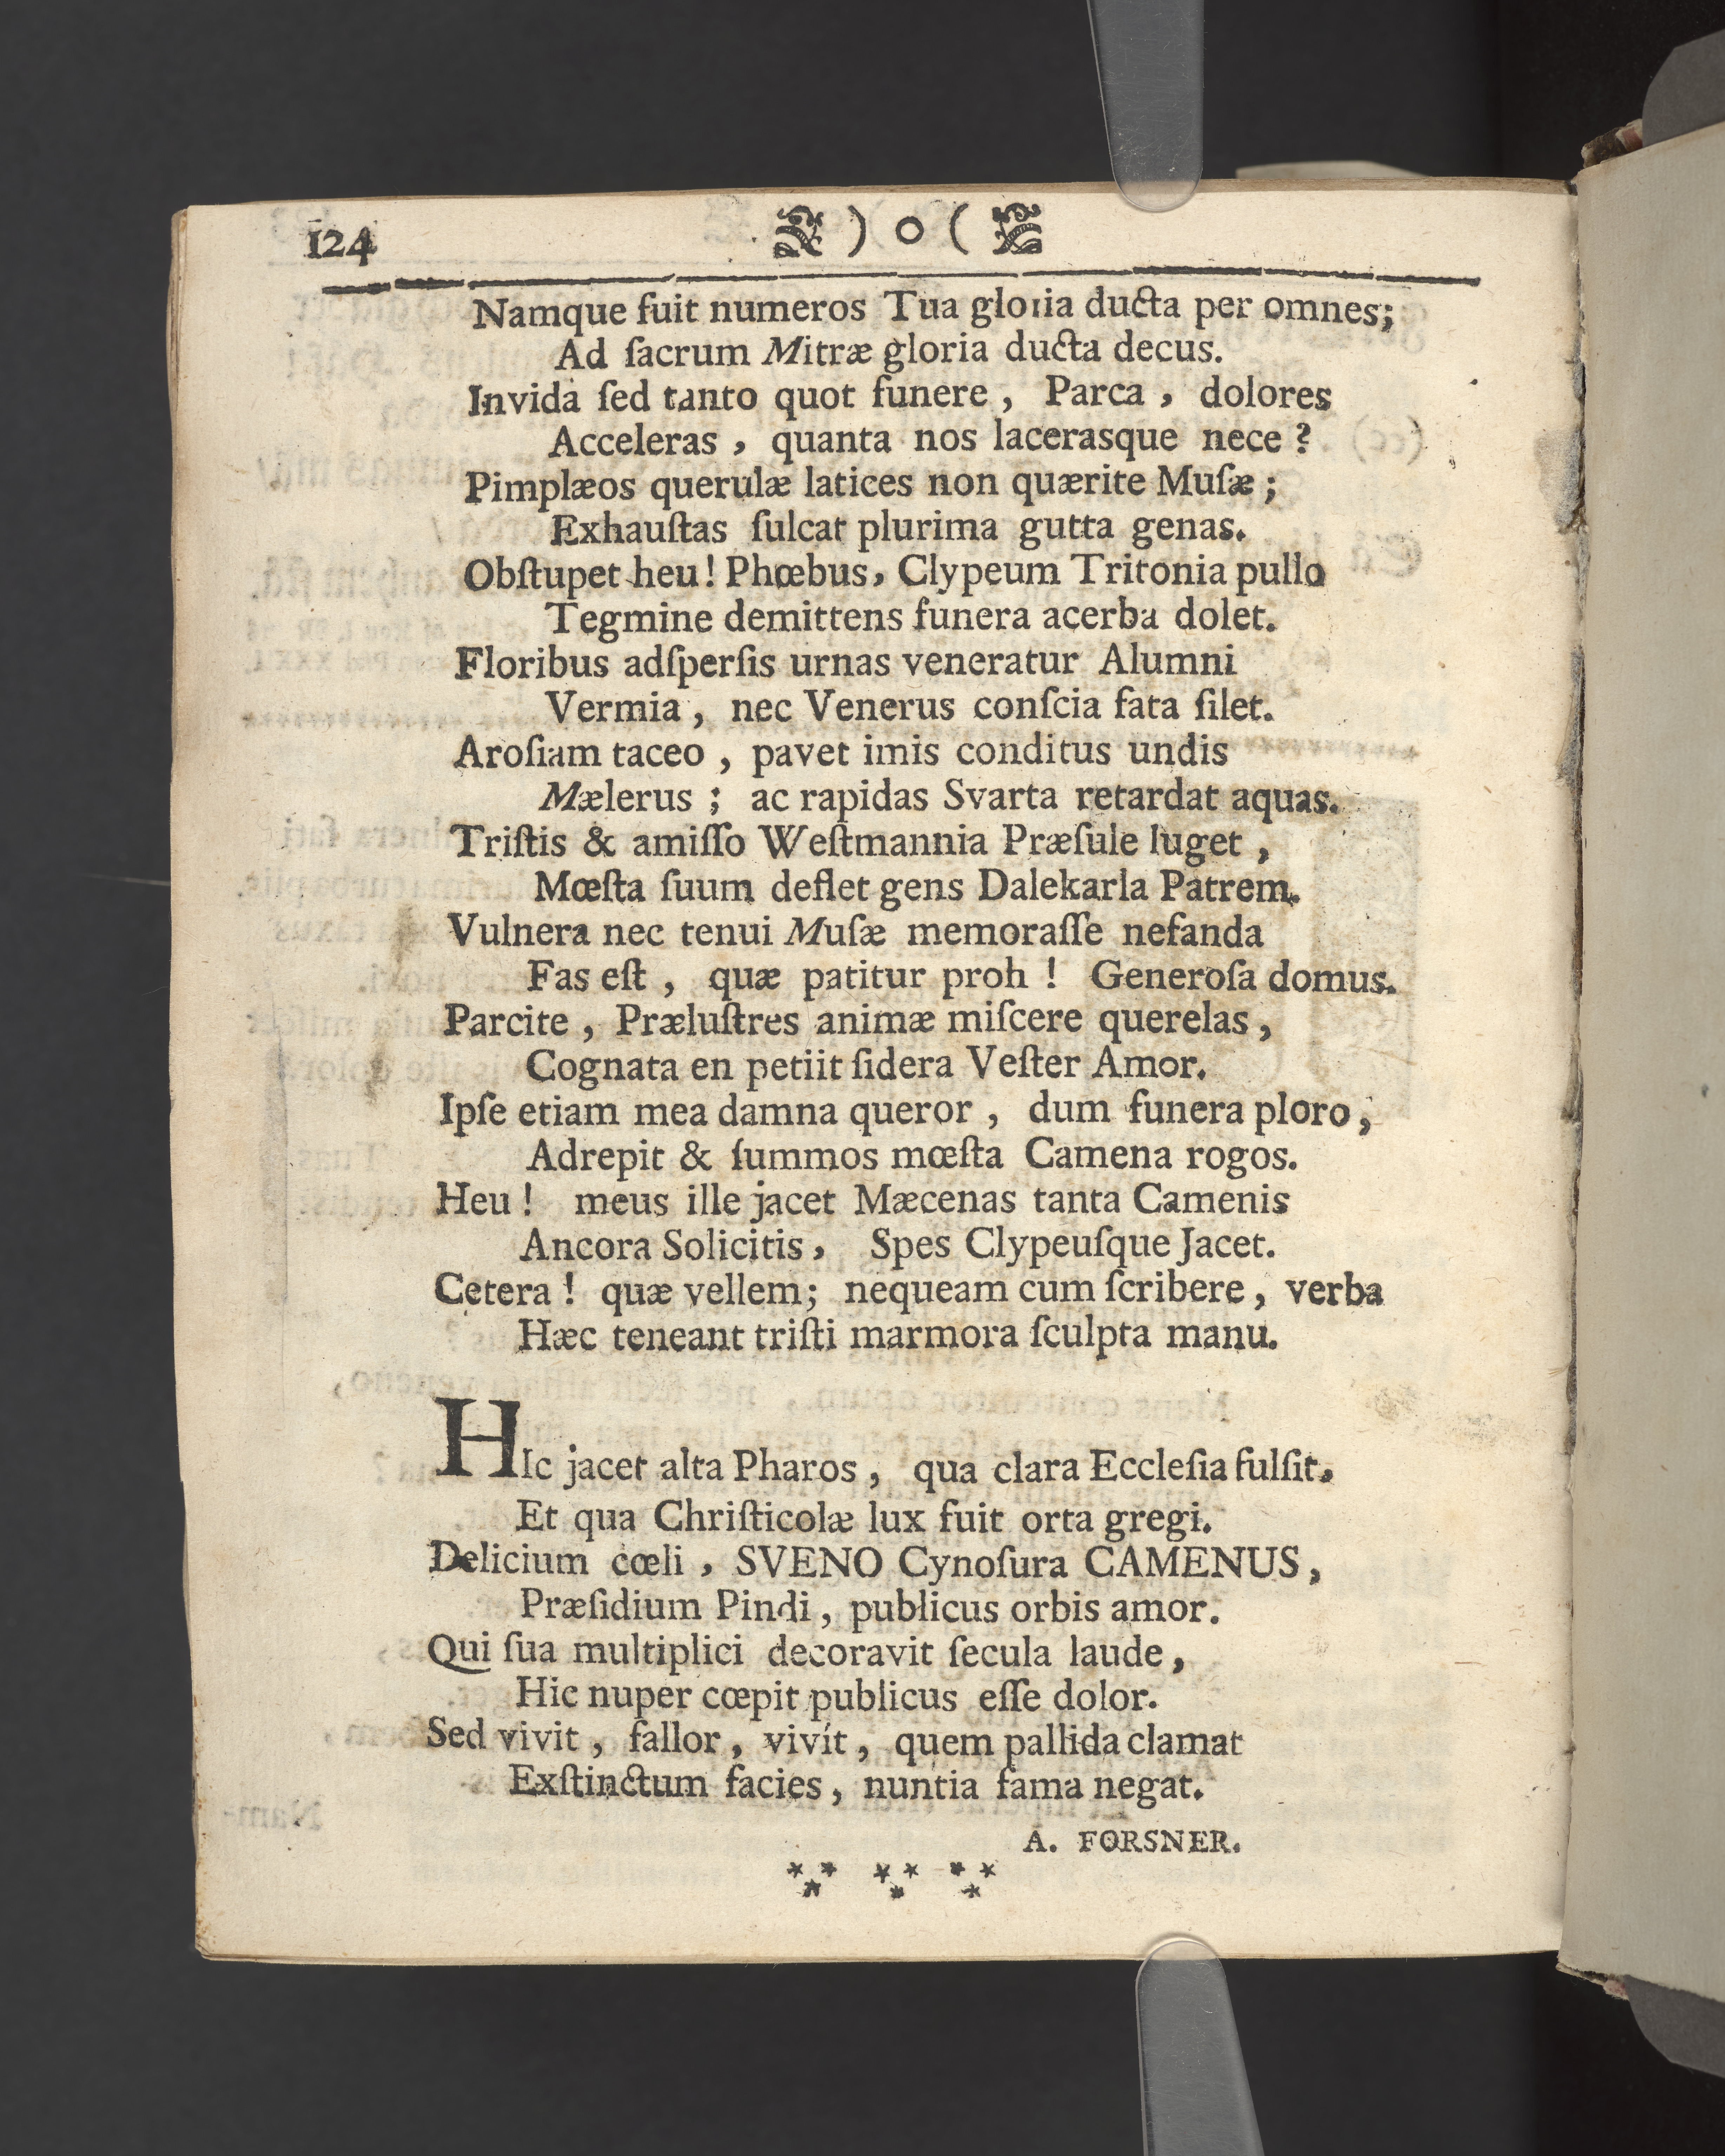 124 ) o (
Namque fuit numeros Tua gloria ducta per omnes;
Ad ſacrum Mitræ gloria ducta decus.
Invida ſed tanto quot funere, Parca, dolores
Acceleras, quanta nos lacerasque nece?
Pimplæos querulæ latices non quærite Muſæ;
Exhauſtas ſulcat plurima gutta genas.
Obſtupet heu! Phœbus, Clypeum Tritonia pullo
Tegmine demittens funera acerba dolet.
Floribus adſperſis urnas veneratur Alumni
Vermia, nec Venerus conſcia fata ſilet.
Aroſiam taceo, pavet imis conditus undis
Mælerus; ac rapidas Svarta retardat aquas.
Triſtis & amiſſo Weſtmannia Præſule luget,
Mœſta ſuum deflet gens Dalekarla Patrem.
Vulnera nec tenui Muſæ memoraſſe nefanda
Fas eſt, quæ patitur proh! Generoſa domus.
Parcite, Præluſtres animæ miſcere querelas,
Cognata en petiit ſidera Veſter Amor.
Ipſe etiam mea damna queror, dum funera ploro,
Adrepit & ſummos mœſta Camena rogos.
Heu! meus ille jacet Mæcenas tanta Camenis
Ancora Solicitis, Spes Clypeuſque Jacet.
Cetera! quæ vellem; nequeam cum ſcribere, verba
Hæc teneant triſti marmora ſculpta manu.
HIc jacet alta Pharos, qua clara Eccleſia fulſit,
Et qua Chriſticolæ lux fuit orta gregi.
Delicium cœli, SVENO Cynoſura CAMENUS,
Præſidium Pindi, publicus orbis amor.
Qui ſua multiplici decoravit ſecula laude,
Hic nuper cœpit publicus eſſe dolor.
Sed vivit, fallor, vivit, quem pallida clamat
Exſtinctum facies, nuntia fama negat.
A. FORSNER.